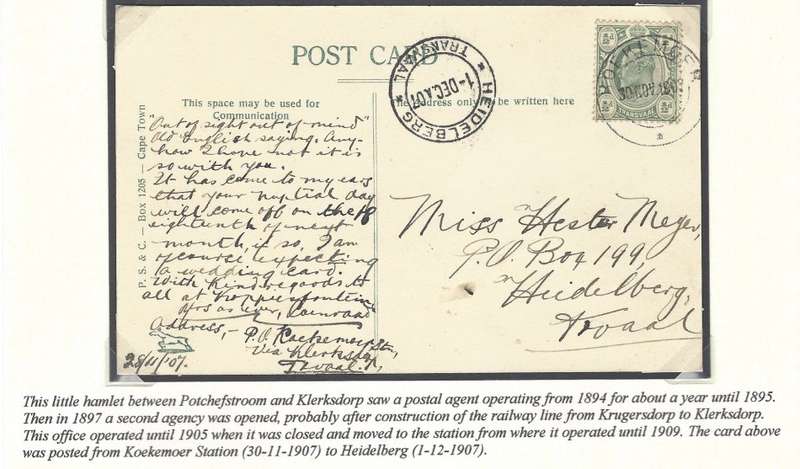 POST CARD
This space may be used for
Communication
The Address only to be written here
P. S. & C. — Box 1205 — Cape Town
HEIDELBERG
TRANSVAAL
1-DEC.07
"Out of sight out of mind"
Old English saying. Any-
how I hope not it is
so with you.
It has come to my ears
that your nuptial day
will come off on the 18
eighteenth of next
month, if so, I am
of course expecting
a wedding card.
With kind regards to
all at
Yrs as ever,
Address,-
P.O. Koekemoer
Via Klerksdorp,
Tvaal.
28/11/'07.
Miss Hester Meyer,
P.O. Box 199,
Heidelberg,
Tvaal
This little hamlet between Potchefstroom and Klerksdorp saw a postal agent operating from 1894 for about a year until 1895.
Then in 1897 a second agency was opened, probably after construction of the railway line from Krugersdorp to Klerksdorp.
This office operated until 1905 when it was closed and moved to the station from where it operated until 1909. The card above
was posted from Koekemoer Station (30-11-1907) to Heidelberg (1-12-1907).